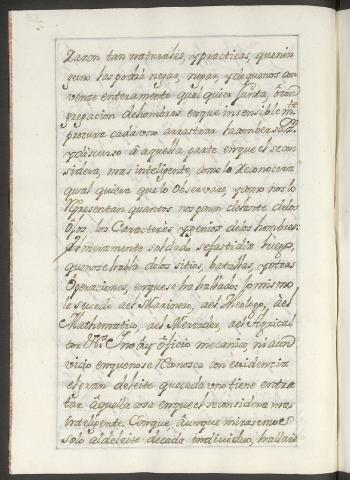 Razon tan naturales, y practicas, que nin
guno las podrà negar, negar, y de que nos con
vence enteramente qual quier Junta, ò con
gregacion de hombres en que insensiblem.te
procura cada uno arrastrar la combers.on
y discurso à aquella parte en que el se con
sidera, mas inteligente, como lo Reconocerà
qual quiera que lo Observare, y como nos lo
Representan quantos nos ponen delante de los
Ojos los Caracteres y genios de los hombres:
Primeramente soldado se fastidia luego,
que no se habla de los sitios, batallas, y otras
Operaciones, en que se ha hallado: lo mismo
le sucede al Marinero, al Theologo, al
Mathematico, al Mercader, al Agricul
tor &.a I no ay officio mecanico, ni aun
vicio en que no se Reconosca con evidencia
el gran deleite que cada uno tiene en tra
tar à quella cosa en que el se considera mas
inteligente. Conque, àunque mirasemos
solo al deleite de cada individuo, hallarè